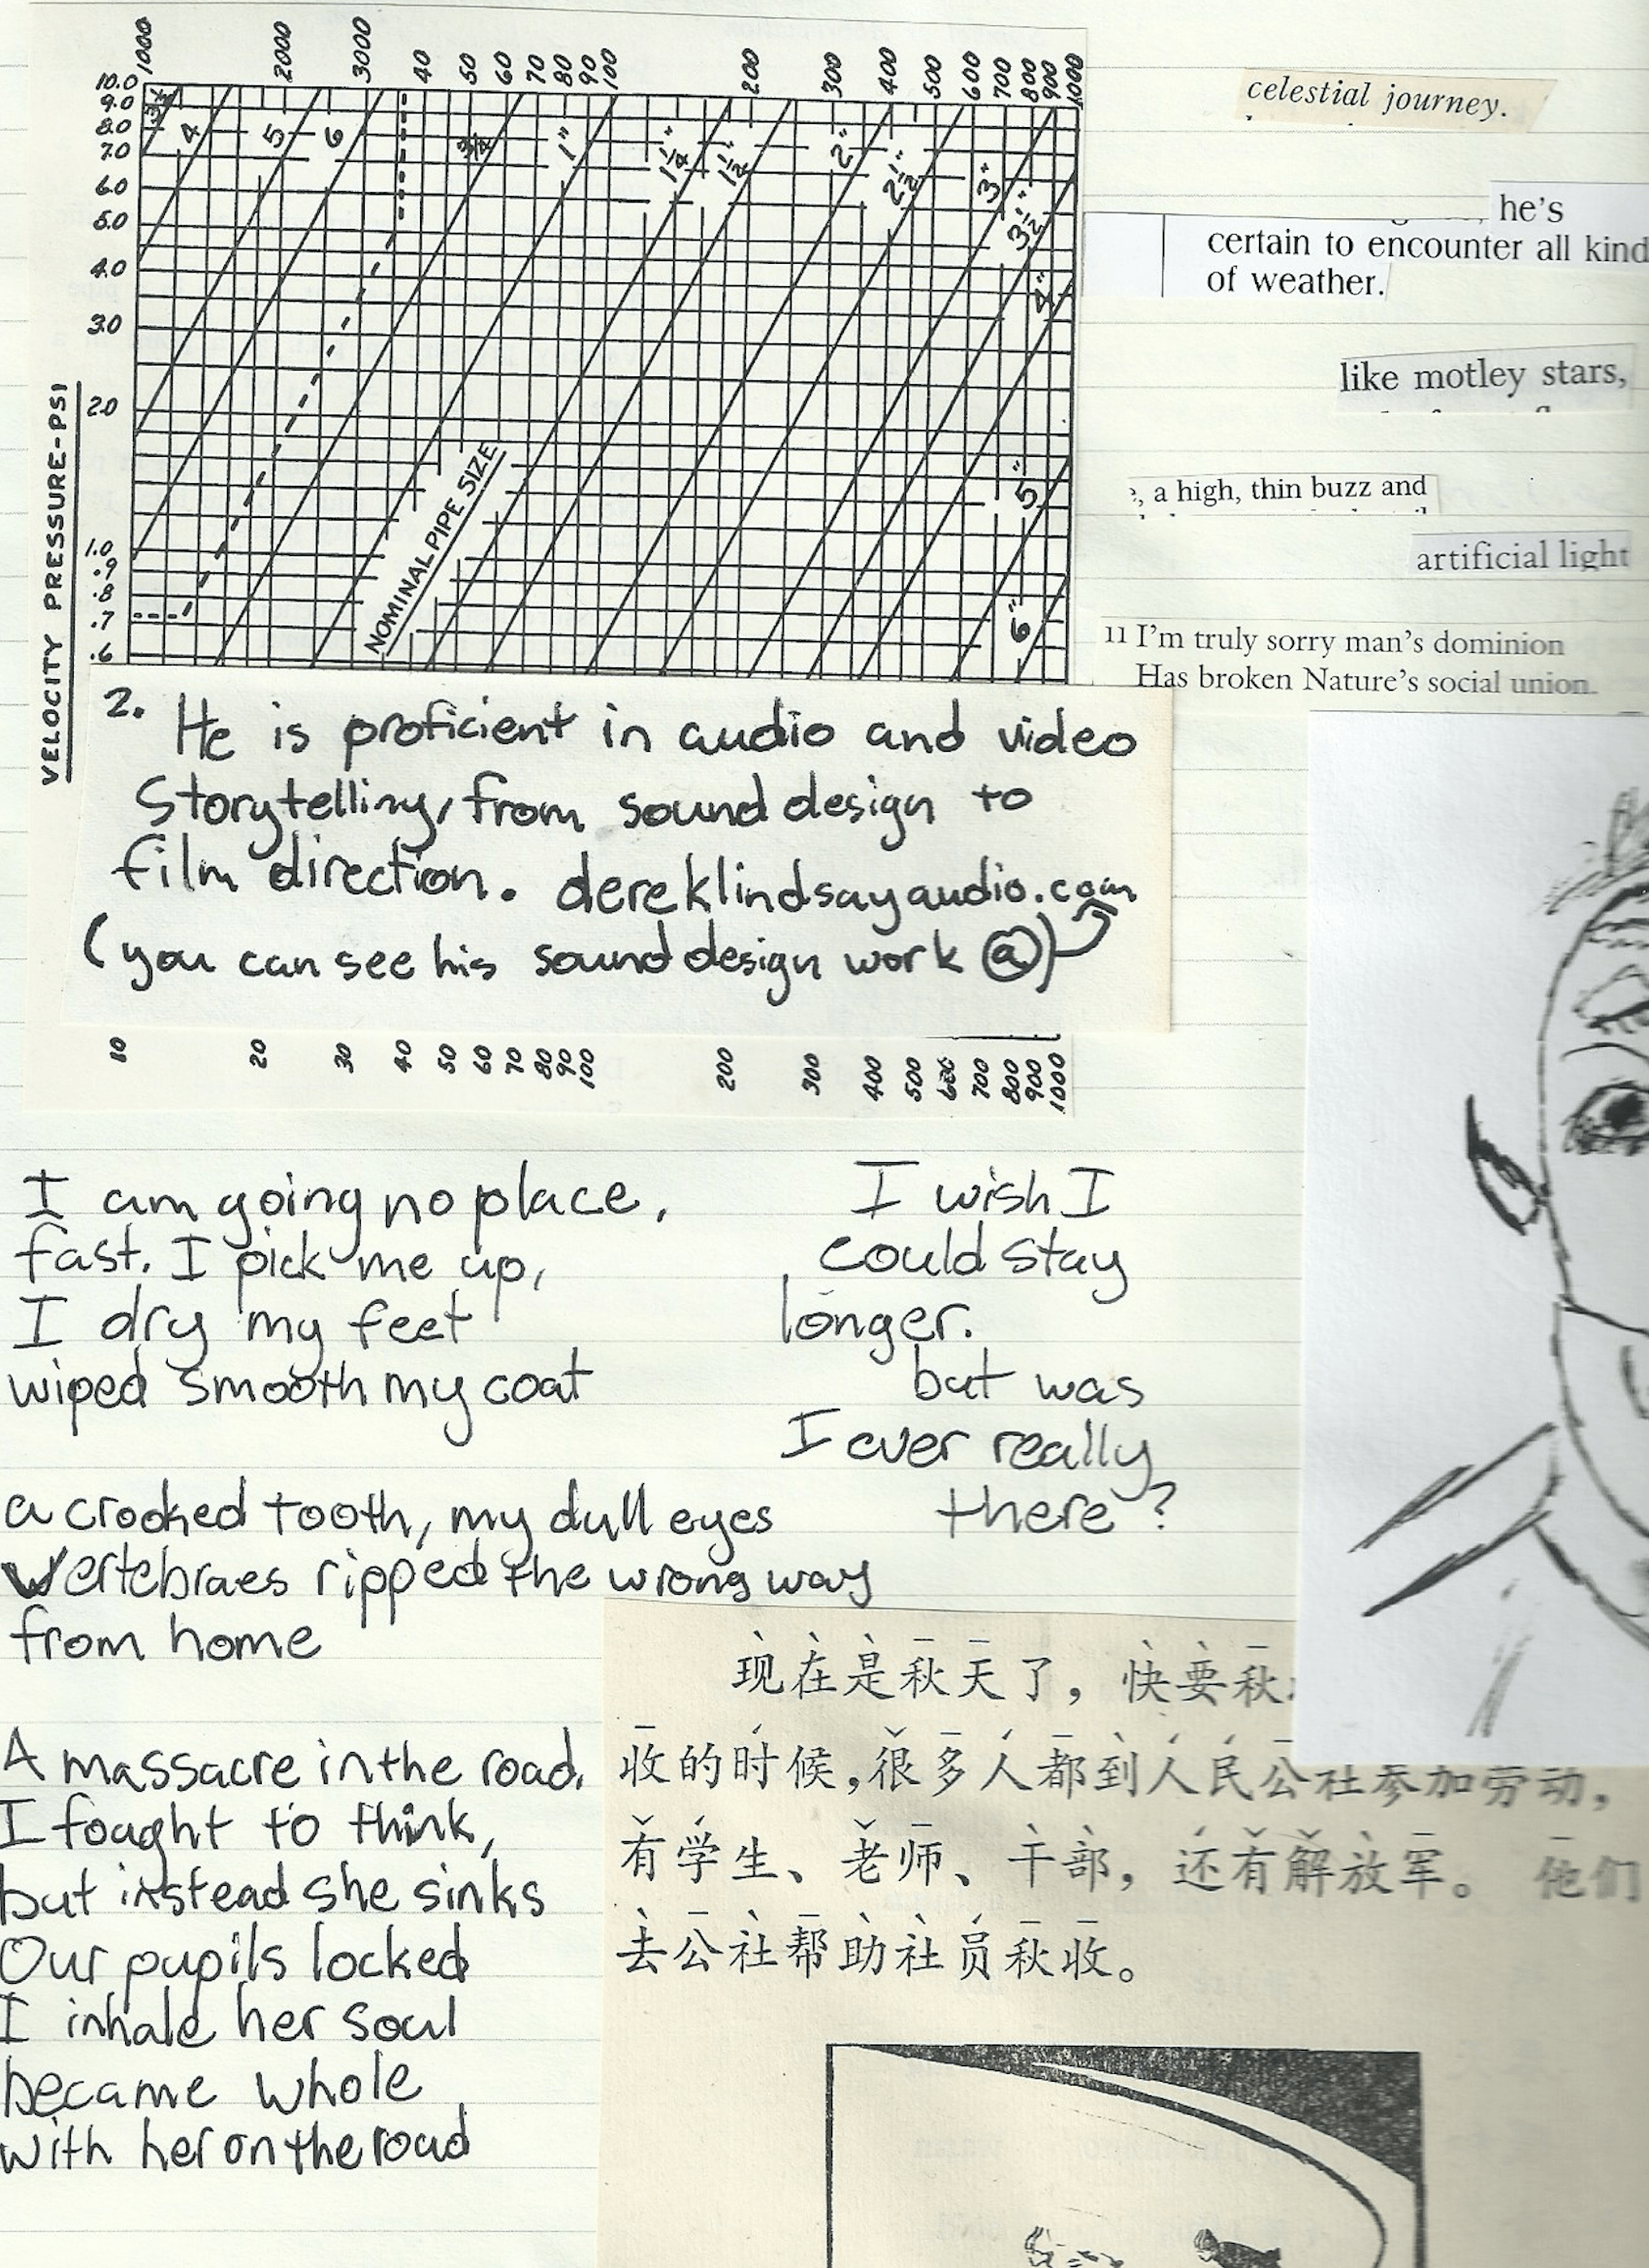 1000 2000 3000 40 50 60 70 80 90 100 200 300 400 500 600 700 800 900 1000
10.0
9.0
8.0
7.0
6.0
5.0
4.0
3.0
2.0
1.0
.9
.8
.7
.6
VELOCITY PRESSURE-PSI
3½ 4 5 6 ¾ 1" 1¼" 1½" 2" 2½" 3" 3½" 4" 5" 6"
NOMINAL PIPE SIZE
celestial journey.
he's
certain to encounter all kind
of weather.
like motley stars,
, a high, thin buzz and
artificial light
11 I'm truly sorry man's dominion
Has broken Nature's social union.
2. He is proficient in audio and video
Storytelling, from sound design to
film direction. dereklindsayaudio.com
(you can see his sound design work @)
10 20 30 40 50 60 70 80 90 100 200 300 400 500 600 700 800 900 1000
I am going no place,
fast. I pick me up,
I dry my feet
wiped smooth my coat
a crooked tooth, my dull eyes
vertebraes ripped the wrong way
from home
A massacre in the road.
I fought to think,
but instead she sinks
Our pupils locked
I inhale her soul
became whole
with her on the road
I wish I
could stay
longer.
but was
I ever really
there?
现在是秋天了，快要秋
收的时候，很多人都到人民公社参加劳动，
有学生、老师、干部，还有解放军。 他们
去公社帮助社员秋收。